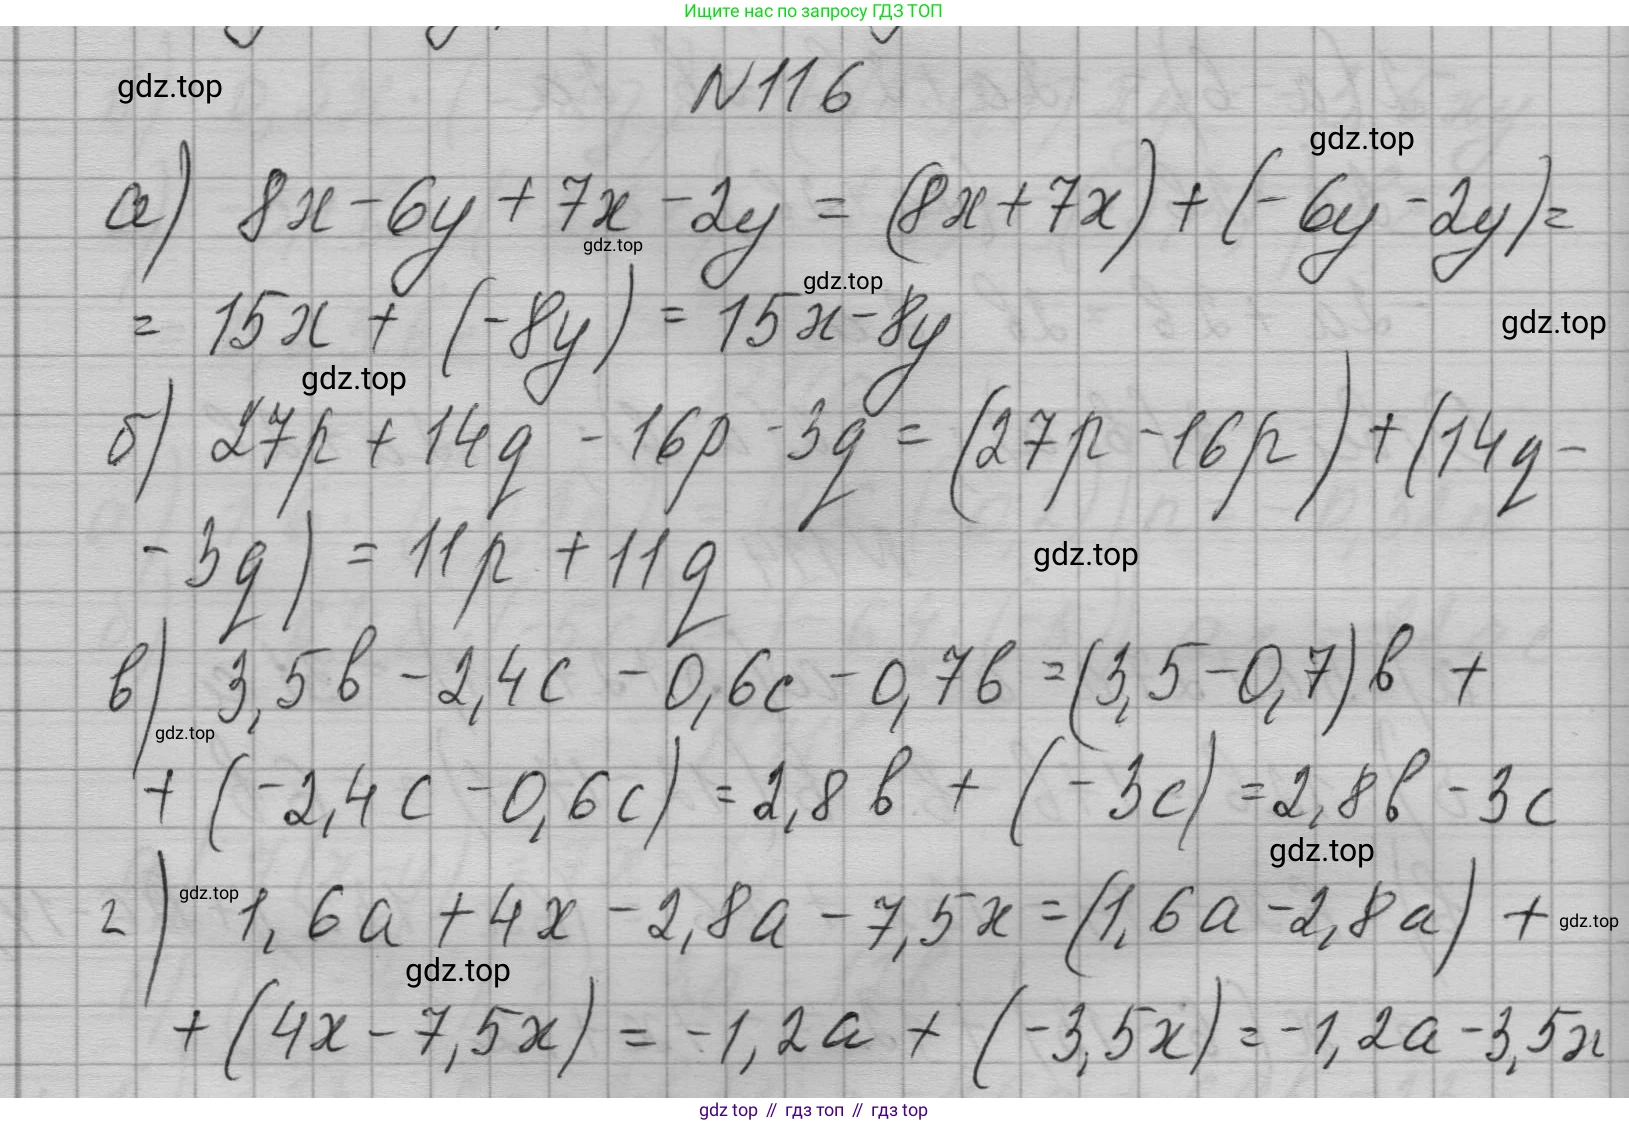 Ищите нас по запросу ГДЗ ТОП
gdz.top
N116
gdz.top
а) 8x - 6y + 7x - 2y = (8x + 7x) + (-6y - 2y) =
gdz.top
gdz.top
= 15x + (-8y) = 15x - 8y
gdz.top
gdz.top
б) 27p + 14q - 16p - 3q = (27p - 16p) + (14q -
- 3q) = 11p + 11q
gdz.top
в) 3,5b - 2,4c - 0,6c - 0,7b = (3,5 - 0,7)b +
gdz.top
+ (-2,4c - 0,6c) = 2,8b + (-3c) = 2,8b - 3c
gdz.top
г) 1,6a + 4x - 2,8a - 7,5x = (1,6a - 2,8a) +
gdz.top
gdz.top
gdz.top
+ (4x - 7,5x) = -1,2a + (-3,5x) = -1,2a - 3,5x
gdz top // гдз топ // гдз top